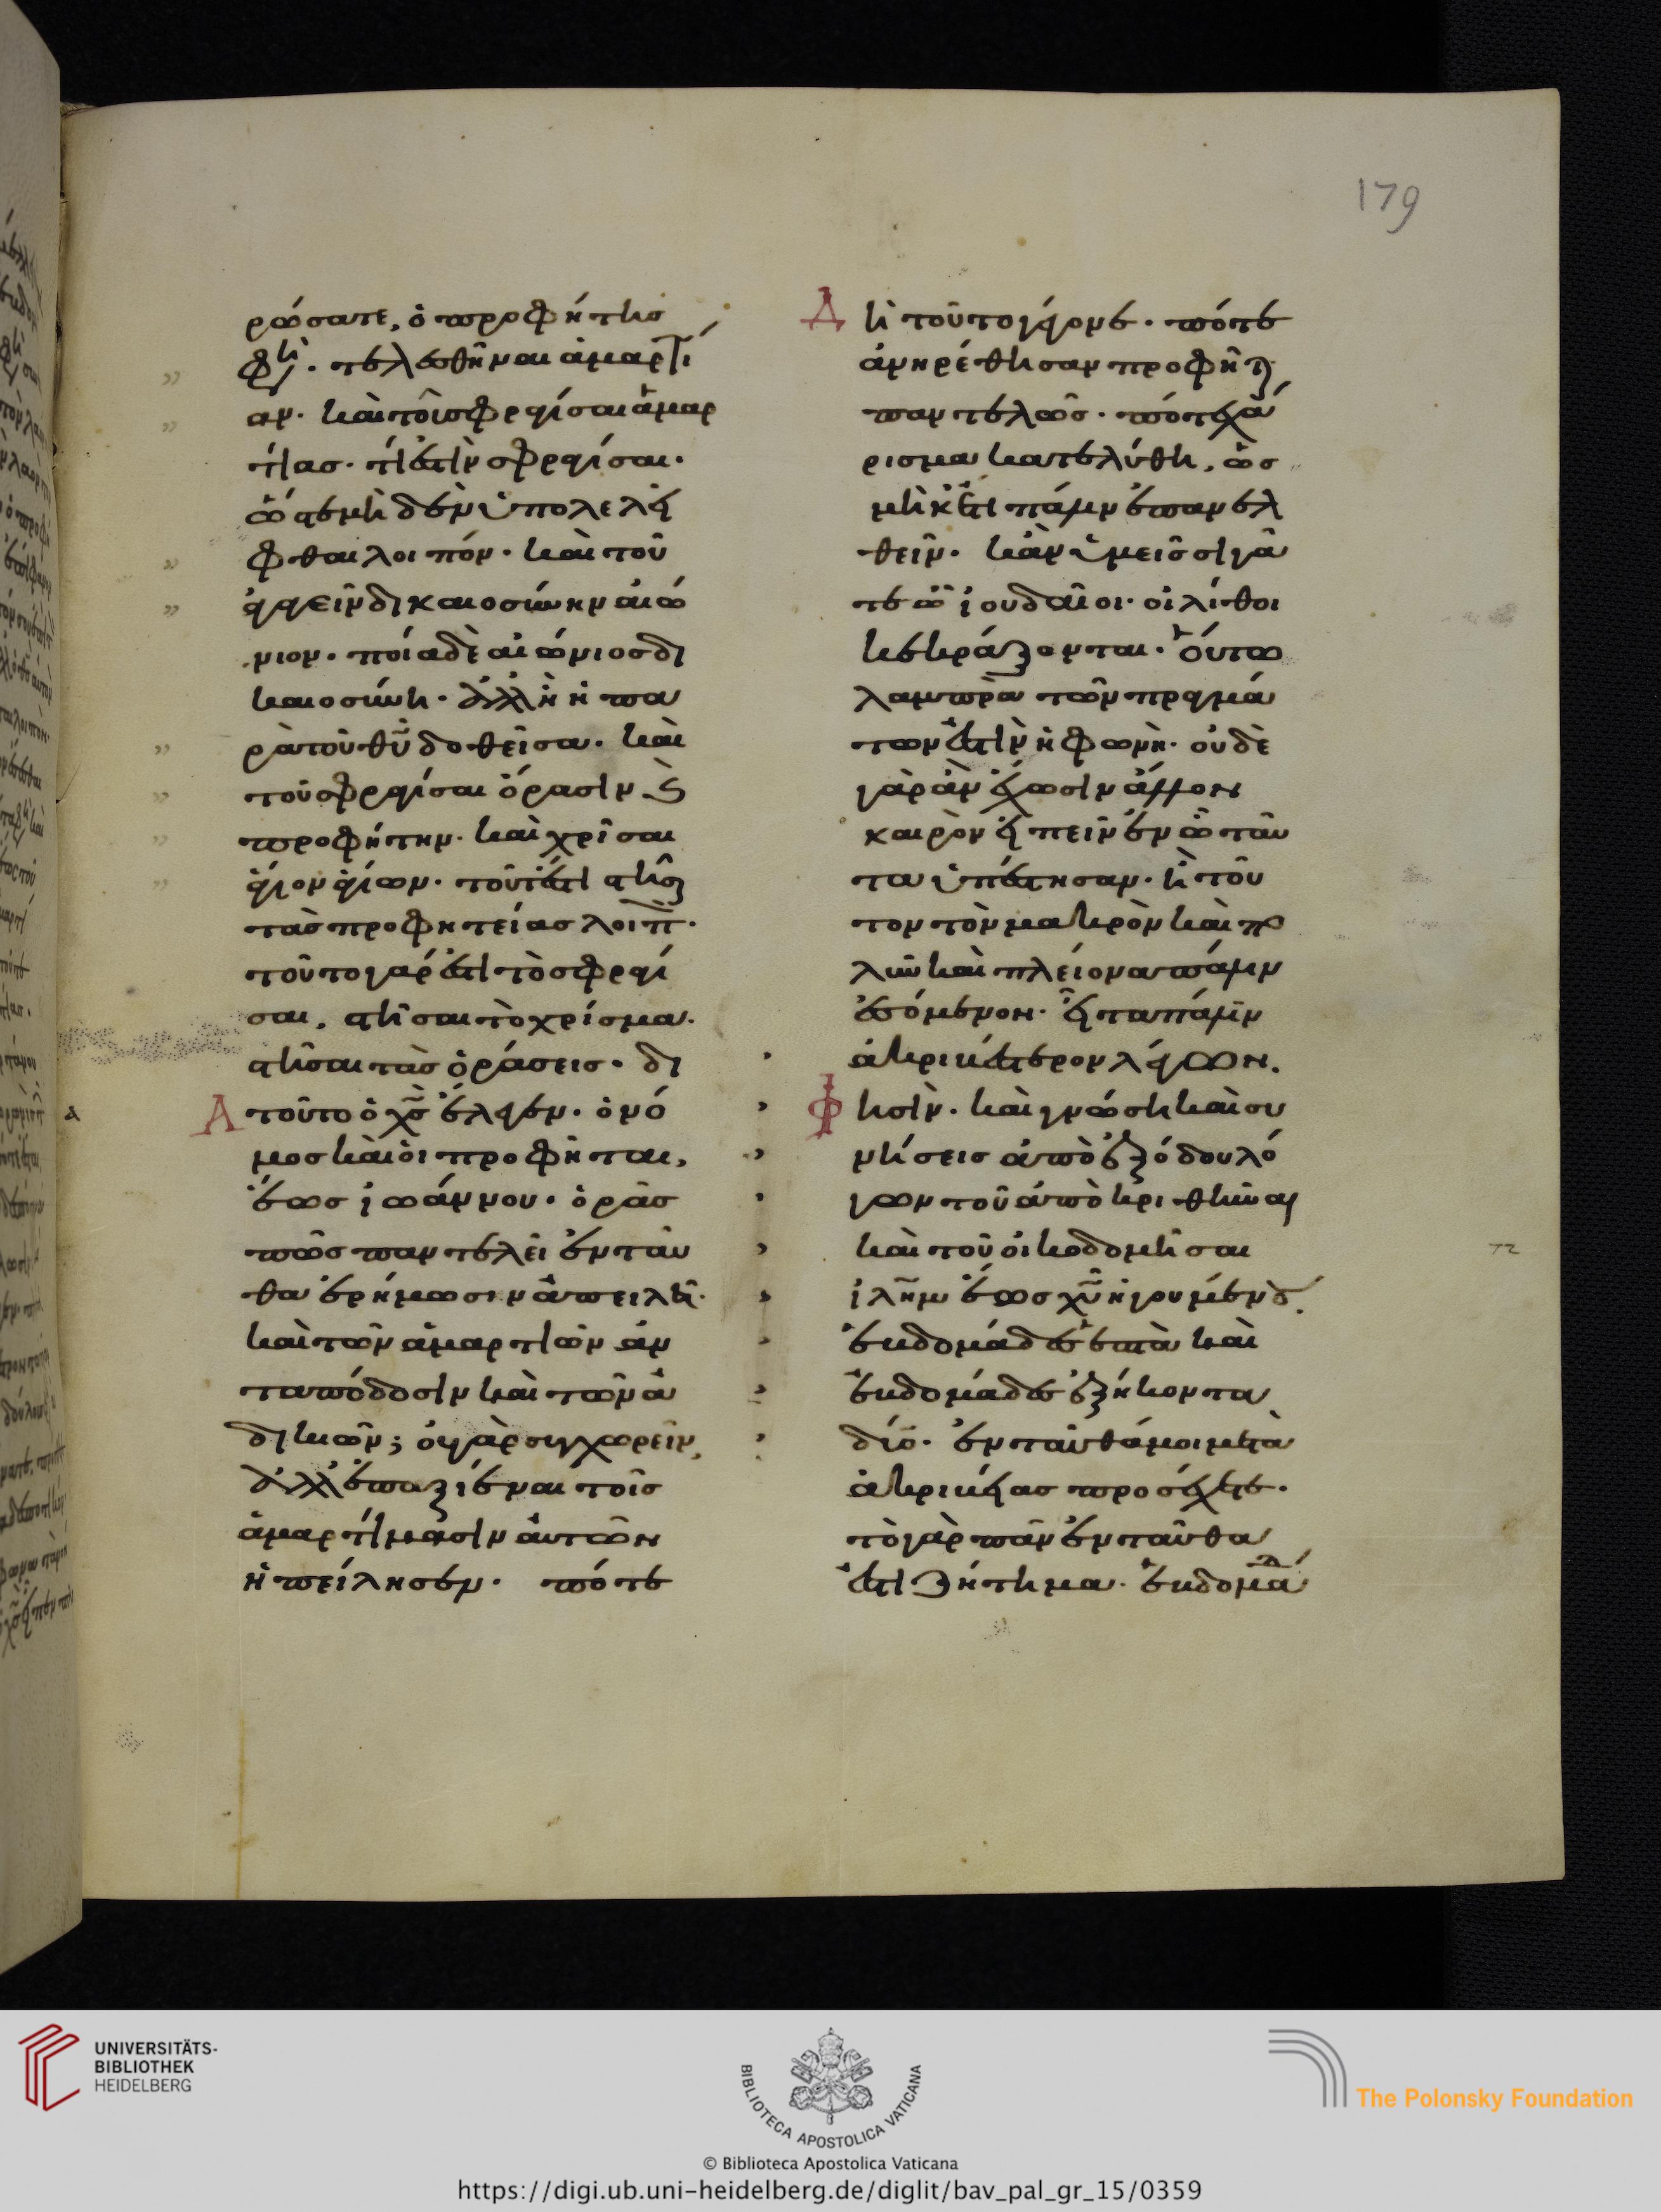 179
ρώσατε, ὁ προφήτης
φη. τελεσθῆναι ἁμαρτί
αν. καὶ τοῦ σφραγίσαι ἁμαρ
τίας. τί ἐστὶν σφραγίσαι.
ὥστε μηδὲν ὑπολελεῖ
φθαι λοιπόν. καὶ τοῦ
ἀγαγεῖν δικαιοσύνην αἰώ
νιον. ποία δὲ αἰώνιος δι
καιοσύνη. ἀλλ' ἢ ἡ πα
ρὰ τοῦ θῡ δοθεῖσα. καὶ
τοῦ σφραγίσαι ὅρασιν καὶ
προφήτην. καὶ χρῖσαι
ἅγιον ἁγίων. τουτέστι στῆσαι
τὰς προφητείας λοιπ.
τοῦτο γάρ ἐστι τὸ σφραγί
σαι, στῆσαι τὸ χρίσμα.
στῆσαι τὰς ὁράσεις. δι
Ατοῦτο ὁ χς ἔλεγεν. ὁ νό
μος καὶ οἱ προφῆται,
ἕως ἰωάννου. ὁρᾶς
πῶς παντελῆ ἐνταῦ
θα ἐρήμωσιν ἀπειλεῖ.
καὶ τῶν ἁμαρτιῶν ἀν
ταπόδοσιν καὶ τῶν ἀ
δικιῶν; οὐ γὰρ συγχωρεῖν,
ἀλλ' ἐπεξιέναι τοῖς
ἁμαρτήμασιν αὐτῶν
ἠπείλησεν. πότε
Δὴ τοῦτο γέγονε. πότε
ἀνηρέθησαν προφῆται
παντελῶς. πότε χά
ρισμα κατελύθη, ὡς
μηκέτι πάλιν ἐπανελ
θεῖν. κἂν ὑμεῖς σιγᾶ
τε ὦ ἰουδαῖοι. οἱ λίθοι
κεκράξονται. οὕτω
λαμπρὰ τῶν πραγμά
των ἐστὶν ἡ φωνή. οὐδὲ
γὰρ ἂν ἔχωσιν ἄλλον
καιρὸν εἰπεῖν ἐν ᾧ ταῦ
τα ὑπέστησαν. ἢ τοῦ
τον τὸν μακρὸν καὶ πο
λὺν καὶ πλείονα πάλιν
ἐσόμενον. εἶτα πάλιν
ἀκριβέστερον λέγων.
Φησίν. καὶ γνώσῃ καὶ συ
νήσεις ἀπὸ ἐξόδου λό
γων τοῦ ἀποκριθῆναι
καὶ τοῦ οἰκοδομῆσαι
ἰλῆμ ἕως χῡ ἡγουμένου.
ἑβδομάδες ἑπτὰ καὶ
ἑβδομάδες ἑξήκοντα
δύο. ἐνταῦθά μοι μετὰ
ἀκριβείας προσέχετε.
τὸ γὰρ πᾶν ἐνταῦθα
ἐστι ζήτημα. ἑβδομά
UNIVERSITÄTS-
BIBLIOTHEK
HEIDELBERG
BIBLIOTECA APOSTOLICA VATICANA
The Polonsky Foundation
© Biblioteca Apostolica Vaticana
https://digi.ub.uni-heidelberg.de/diglit/bav_pal_gr_15/0359